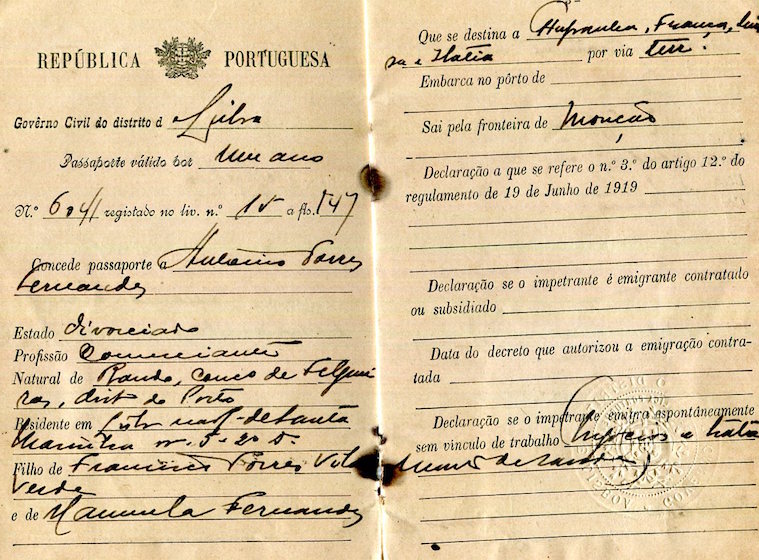 REPÚBLICA PORTUGUESA
Govêrno Civil do distrito d Lisboa
Passaporte válido por um ano
N.º registado no liv. n.º 15 a fls. 147
Concede passaporte a António Torres
Fernandes
Estado divorciado
Profissão Comerciante
Natural de Rande, conco de Felguei
ras, dist do Porto
Residente em
Filho de Francisco Torres Vila
Verde
e de Manuela Fernandes
Que se destina a Hespanha, França, Sui
ssa e Italia por via terr.
Embarca no pôrto de
Sai pela fronteira de Monção
Declaração a que se refere o n.º 3.º do artigo 12.º do
regulamento de 19 de Junho de 1919
Declaração se o impetrante é emigrante contratado
ou subsidiado
Data do decreto que autorizou a emigração contra-
tada
Declaração se o impetrante emigra espontâneamente
sem vínculo de trabalho Negocios e trata
mento de saude